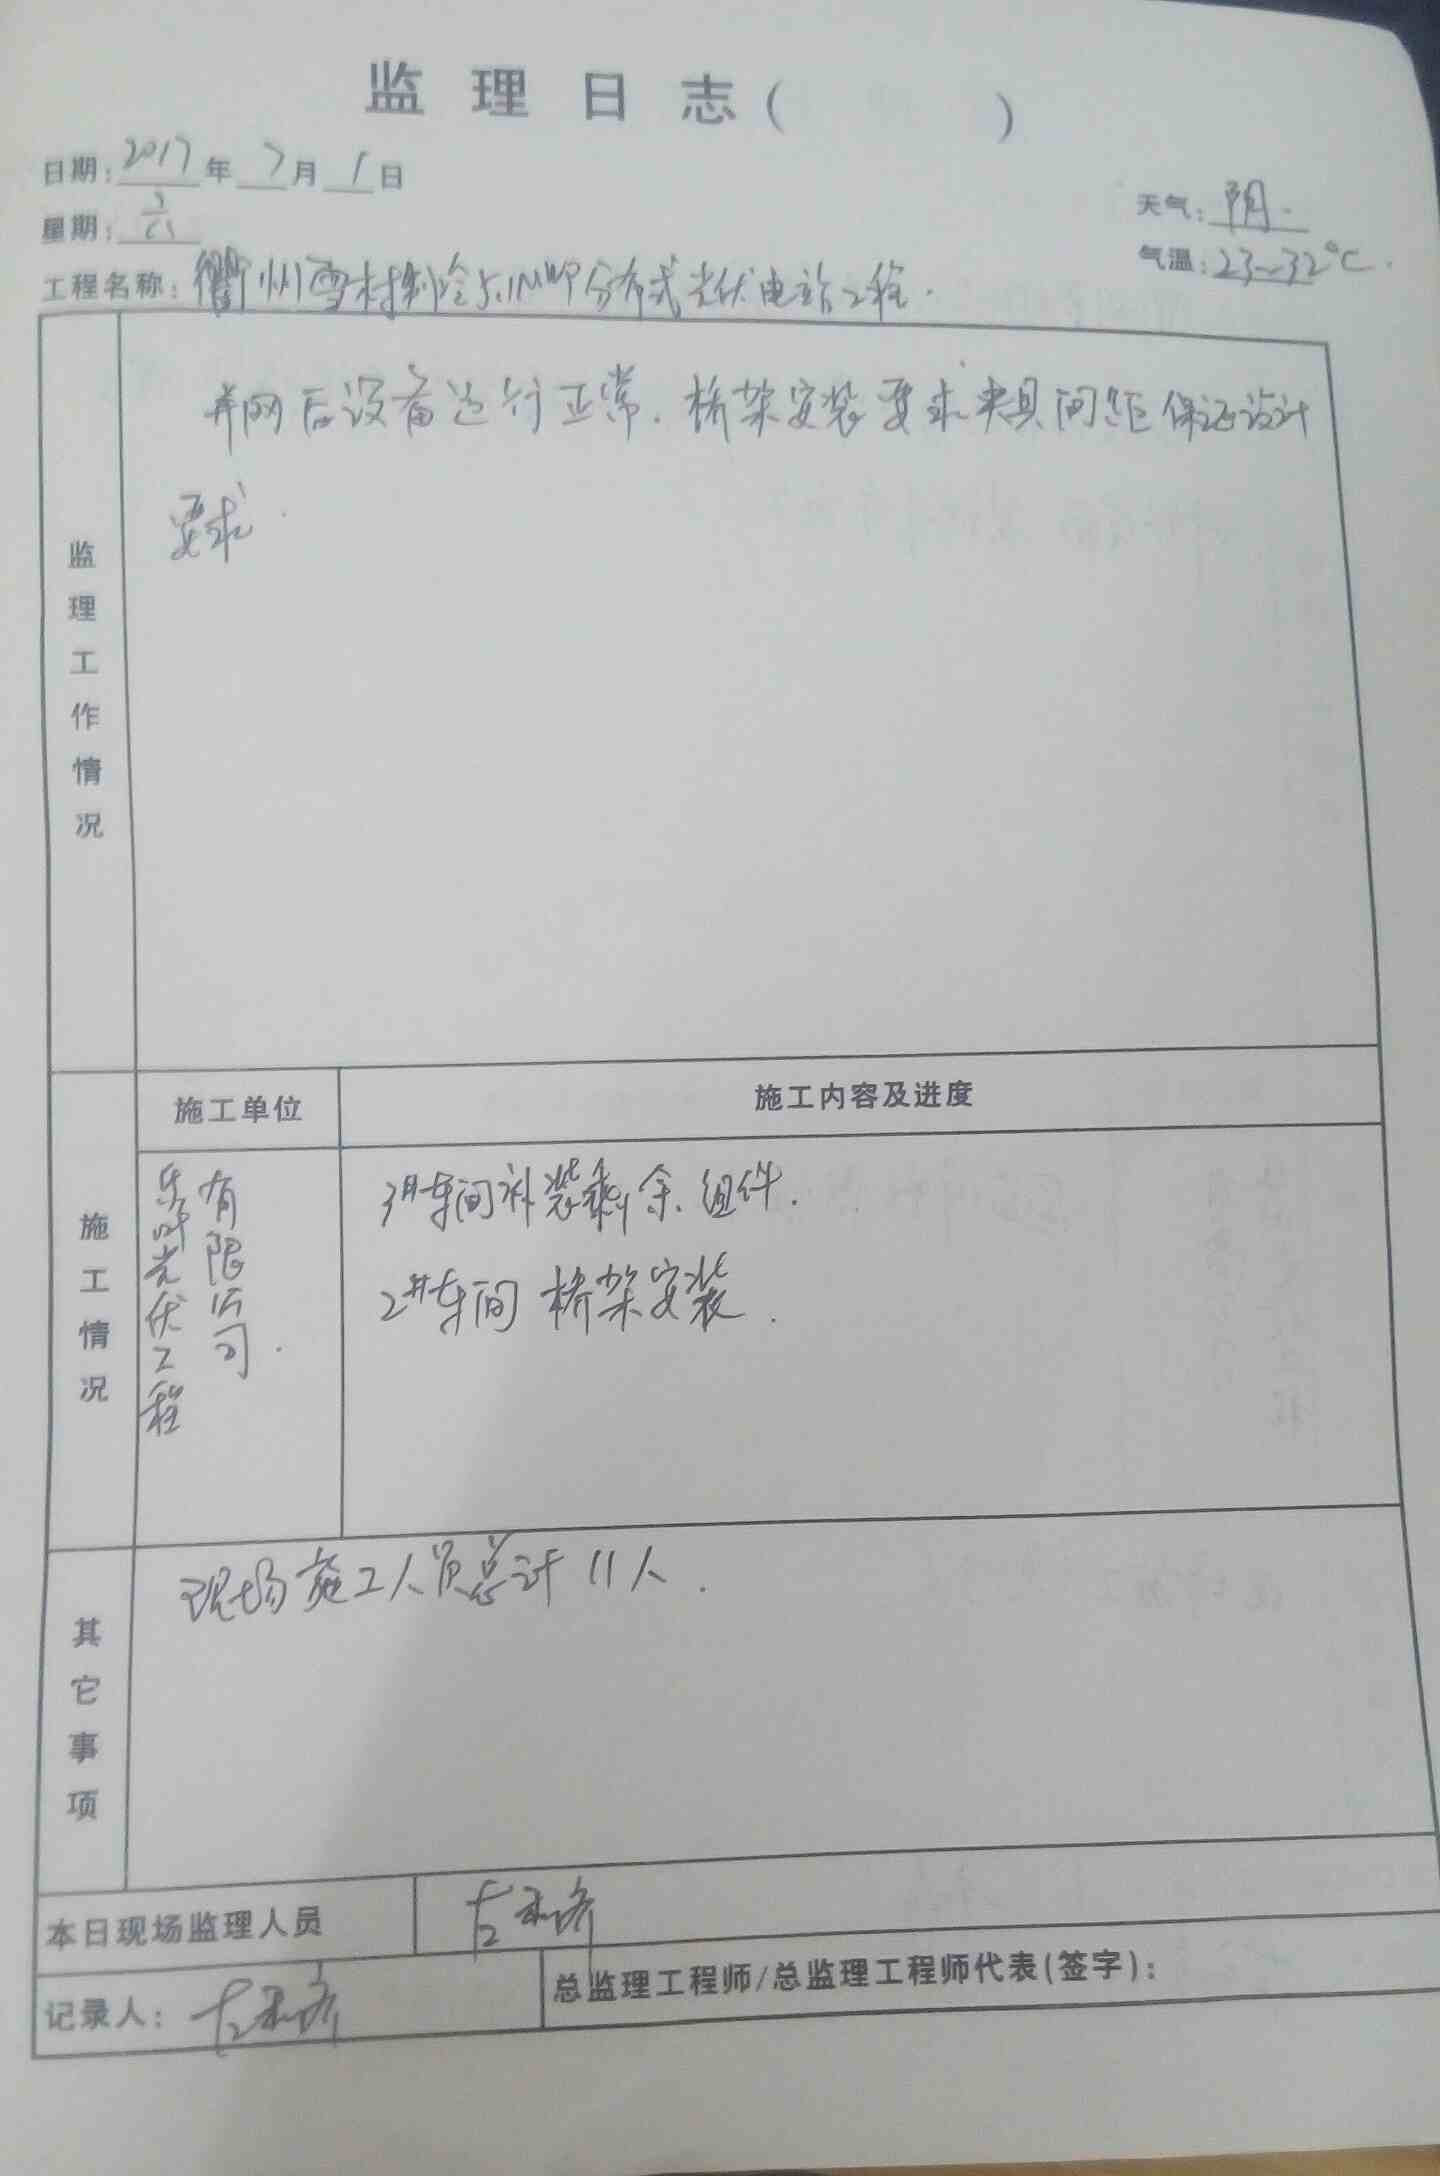 监理日志(    )
日期:2017年7月1日
天气:阴.
星期:六
气温:23~32℃.
工程名称:衢州雪村制冷5.1MWP分布式光伏电站工程.
监理工作情况
并网后设备运行正常.桥架安装要求夹具间距保证设计
要求.
施工情况
施工单位
施工内容及进度
乐叶光伏工程
有限公司.
3#车间补装剩余组件.
2#车间桥架安装.
其它事项
现场施工人员总计11人.
本日现场监理人员
记录人:
总监理工程师/总监理工程师代表(签字):